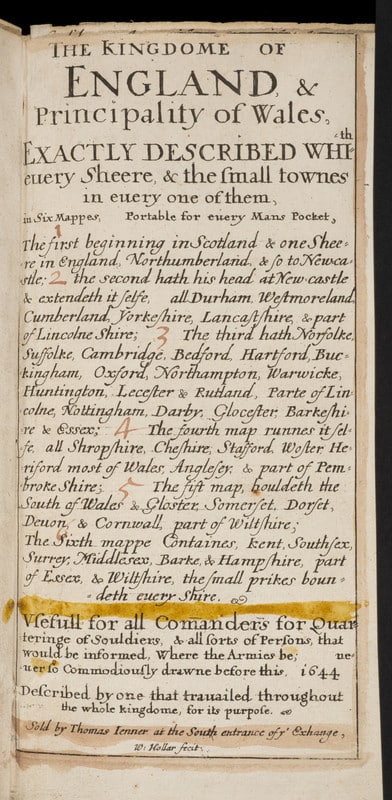 THE KINGDOME OF
ENGLAND, &
Principality of Wales,
EXACTLY DESCRIBED WHITH
euery Sheere, & the small townes
in euery one of them,
in Six Mappes, Portable for euery Mans Pocket,
1
The first beginning in Scotland & one Shee-
re in England, Northumberland, & so to Newca-
stle; 2 the second hath his head at New-castle
& extendeth it selfe, all Durham, Westmoreland,
Cumberland, Yorkeshire, Lancastshire, & part
of Lincolne Shire; 3 The third hath Norfolke,
Suffolke, Cambridge, Bedford, Hartford, Buc-
kingham, Oxford, Northampton, Warwicke,
Huntington, Lecester & Rutland, Parte of Lin-
colne, Nottingham, Darby, Glocester, Barkeshi-
re & Essex; 4 The fourth map runnes it sel-
fe, all Shropshire, Cheshire, Stafford, Woster, He-
riford most of Wales, Anglesey, & part of Pem-
broke Shire; 5 The fift map, houldeth the
South of Wales & Gloster, Somerset, Dorset,
Deuon, & Cornwall, part of Wiltshire;
6
The Sixth mappe Containes, kent, Southsex,
Surrey, Middlesex, Barke, & Hampshire, part
of Essex, & Wiltshire, the small prikes boun-
deth euery Shire.
Vsefull for all Comanders for Quar-
teringe of Souldiers, & all sorts of Persons, that
would be informed, Where the Armies be; ne-
uer so Commodiously drawne before this. 1644
Described by one that trauailed throughout
the whole kingdome, for its purpose.
Sold by Thomas Ienner at the South entrance of yᵉ Exhange,
W: Hollar fecit.